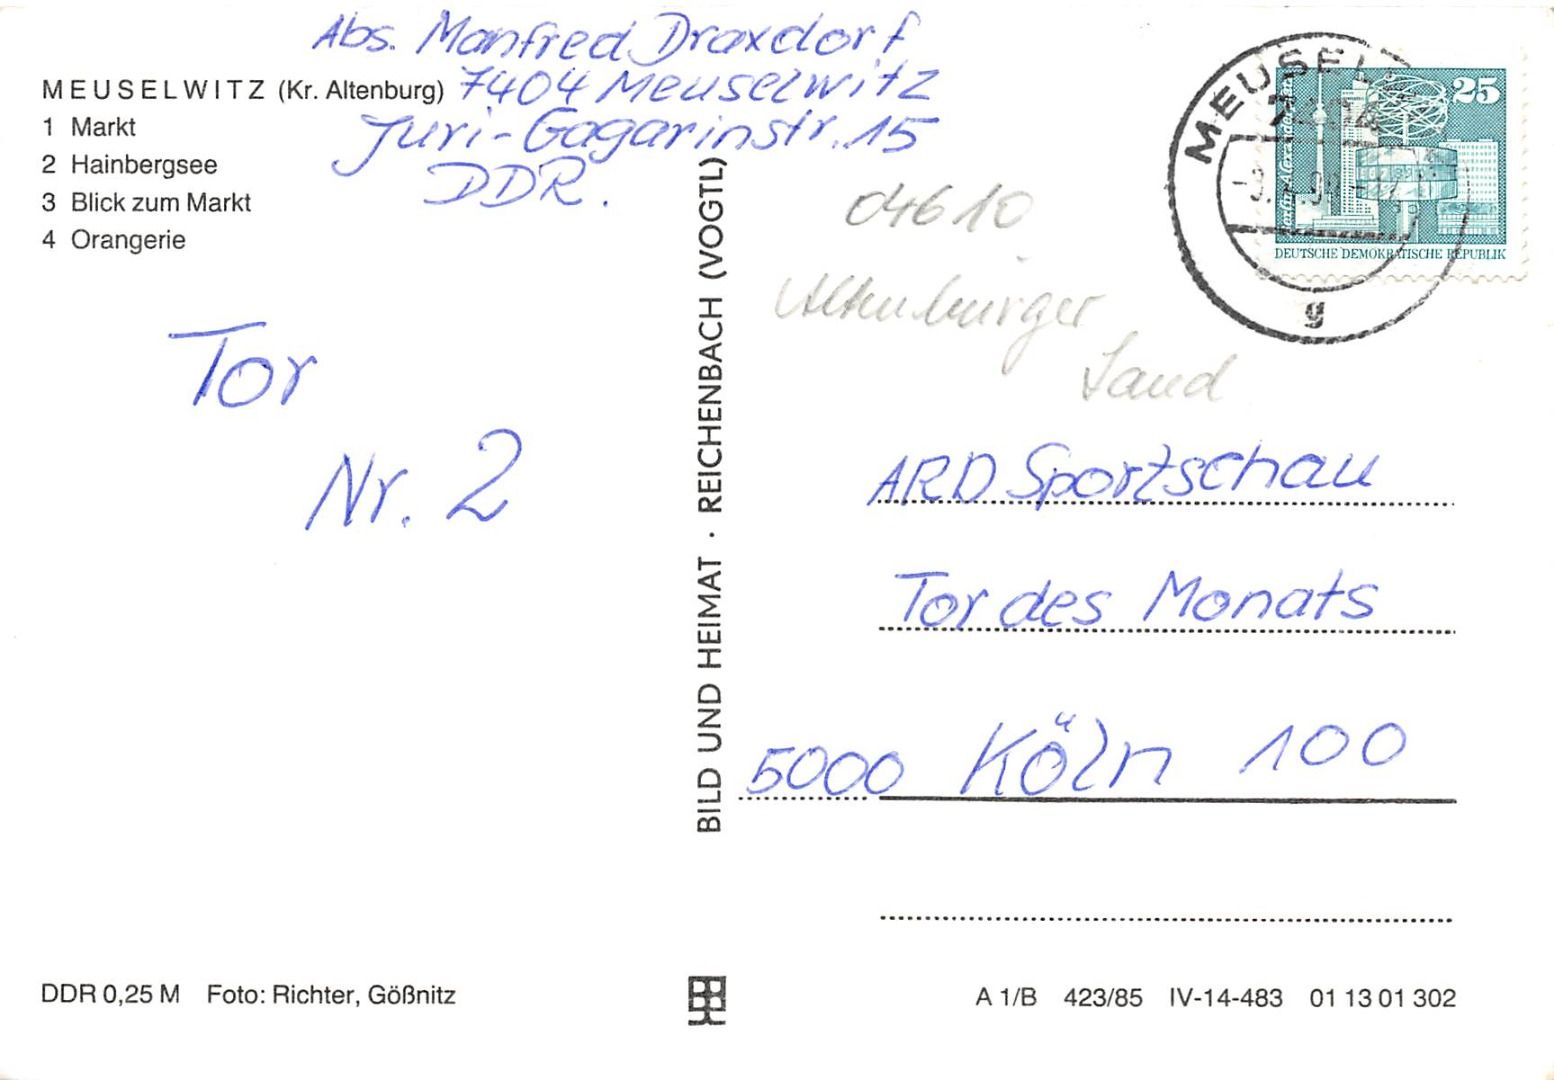 Abs. Manfred Draxdorf
7404 Meuselwitz
Juri-Gagarinstr. 15
DDR.
MEUSELWITZ (Kr. Altenburg)
1 Markt
2 Hainbergsee
3 Blick zum Markt
4 Orangerie
Tor
Nr. 2
BILD UND HEIMAT · REICHENBACH (VOGTL)
04610
Altenburger
Land
25
DEUTSCHE DEMOKRATISCHE REPUBLIK
g
ARD Sportschau
Tor des Monats
5000 Köln 100
DDR 0,25 M Foto: Richter, Gößnitz
A 1/B 423/85 IV-14-483 01 13 01 302